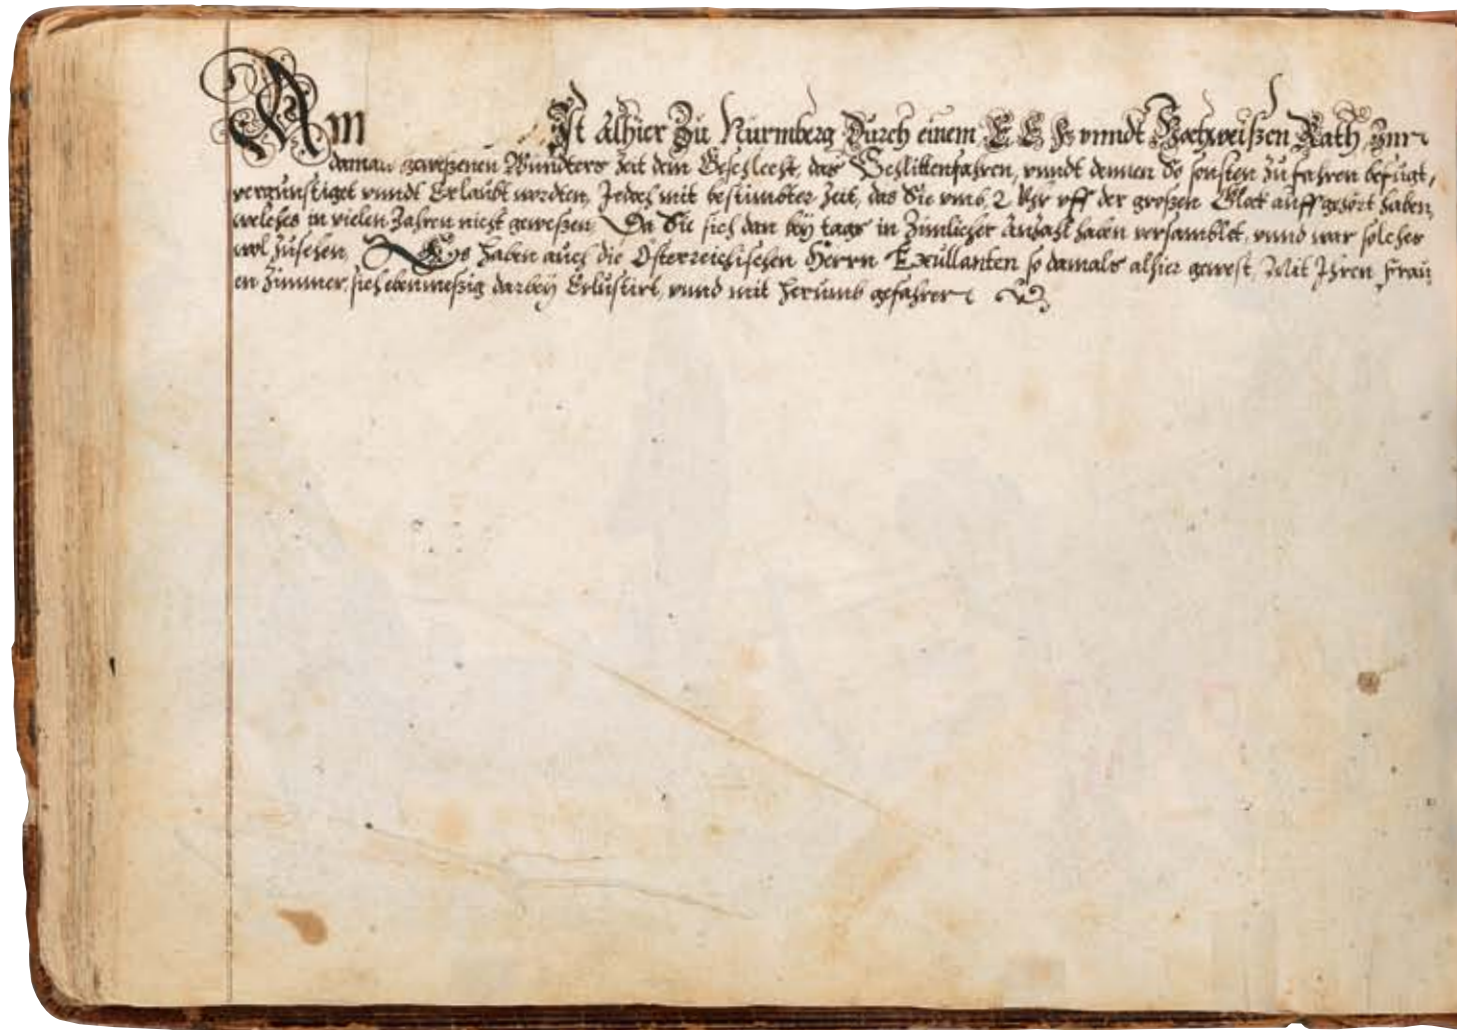 Am Ist alhier Zu Nürmberg Durch einem E E F vnndt Hochweißen Rath, Inn
damaln geweßenen Wündters Zeit dem Geschlecht, das Schlittenfahren, vnndt demen So sonsten Zu fahren befugt,
vergünstiget vnndt Erlaubt wordten, Jedoch mit bestimbter Zeit, das Sie vmb 2 Vhr vff der großen Glock auffgehört haben,
welches in vielen Jahren nicht geweßen Da Sie sich dan bey tags in Zimlicher Anzahl haben versamblet, vnnd war solches
wol Zusehen, Es haben auch die Österreichischen Herrn Exullanten so damals alhier gewest, Mit Ihren Frau
en Zimmer, sich ebenmeßig darbey Erlustirt, vnnd mit herumb gefahren